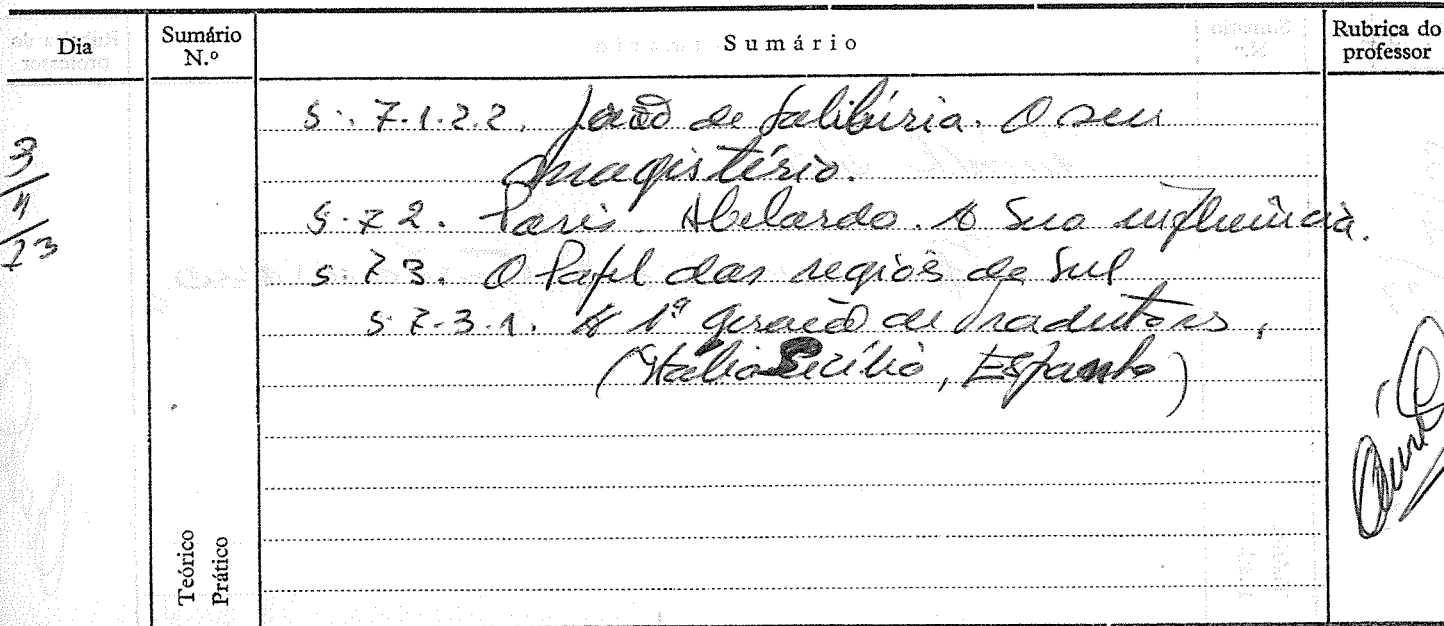 Dia
Sumário N.º
Sumário
Rubrica do professor
3/4/73
5.7.1.2.2. João de Salibúria. O seu
magistério.
5.7.2. Paris. Abelardo. A sua influência.
5.7.3. O Papel das regiões do Sul
5.7.3.1. A 1ª geração de tradutores,
(Itália Sicília, Espanha)
Teórico
Prático